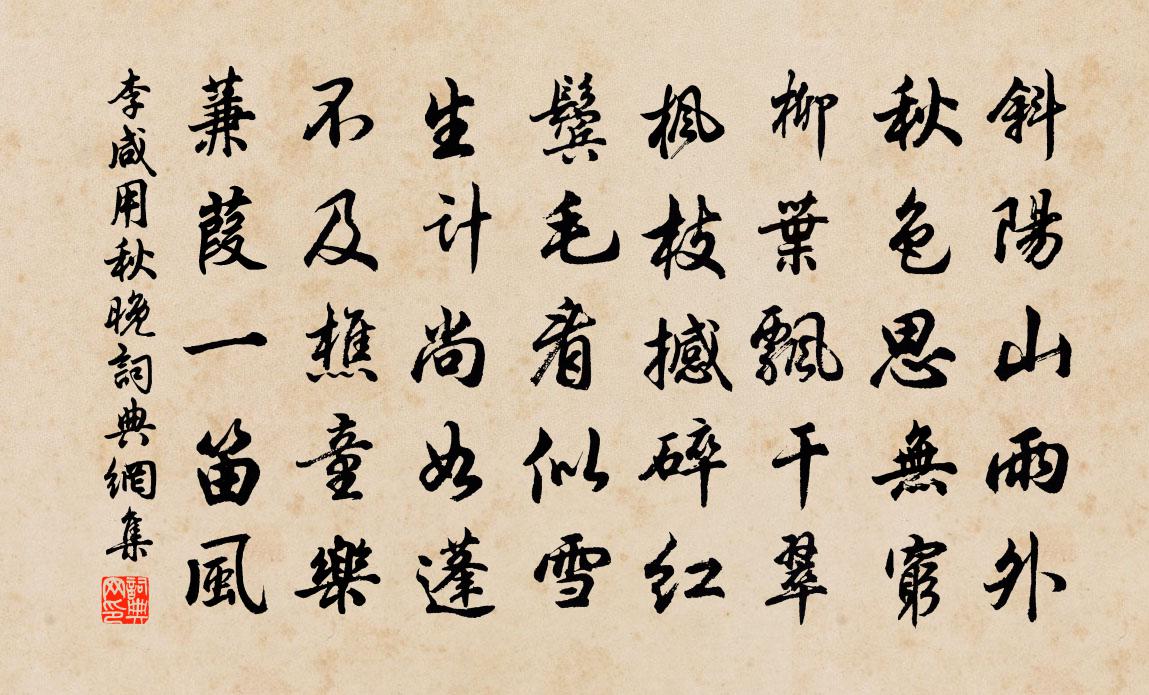 斜陽山雨外
秋色思無窮
柳葉飄干翠
楓枝撼碎紅
鬓毛看似雪
生计尚如蓬
不及樵童樂
蒹葭一笛風
李咸用秋晚詞典網集
詞典
网印